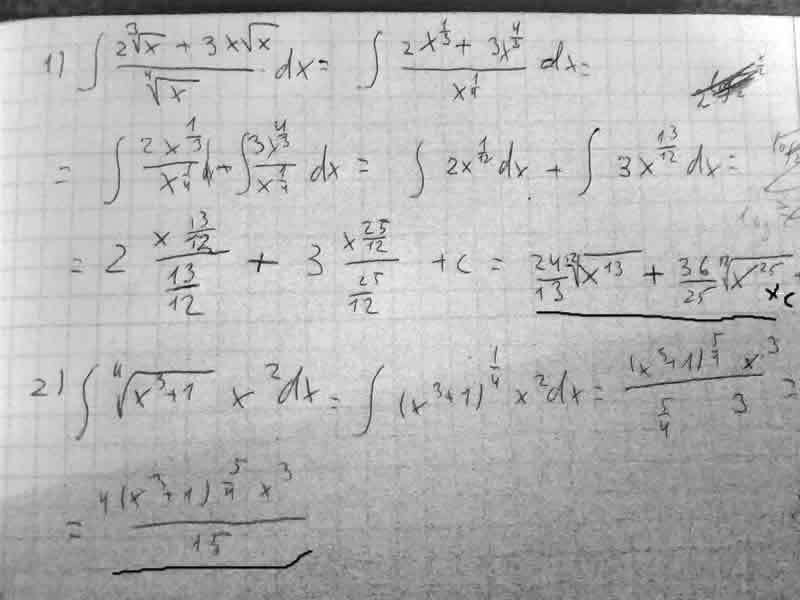 1) ∫ (2∛x + 3x√x)/(∜x) dx = ∫ (2x^(1/3) + 3x^(4/3))/(x^(1/4)) dx =
= ∫ (2x^(1/3))/(x^(1/4)) d + ∫ (3x^(4/3))/(x^(1/4)) dx = ∫ 2x^(1/12) dx + ∫ 3x^(13/12) dx =
= 2 (x^(13/12))/(13/12) + 3 (x^(25/12))/(25/12) + c = 24/13 ¹²√(x^13) + 36/25 ¹²√(x^25) + c
2) ∫ ∜(x³+1) x² dx = ∫ (x³+1)^(1/4) x² dx = ((x³+1)^(5/4) x³)/(5/4 3) =
= (4(x³+1)^(5/4) x³)/15